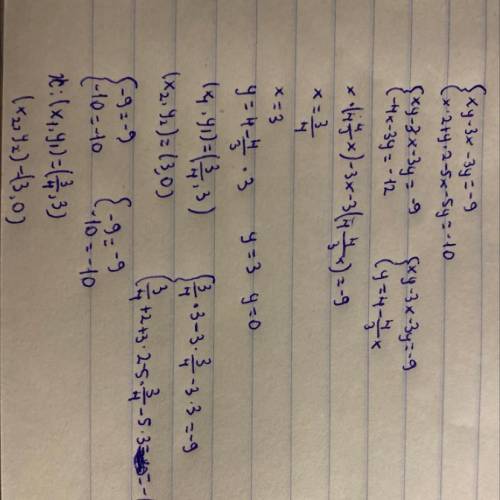 {xy-3x-3y=-9
{x·2+y·2-5x-5y=-10
{xy-3x-3y=-9 {xy-3x-3y=-9
{-4x-3y=-12 {y=4-4/3x
x·(4-4/3x)-3x-3(4-4/3x)=-9
x=3/4
x=3
y=4-4/3·3 y=3 y=0
(x1,y1)=(3/4,3) {3/4·3-3·3/4-3·3=-9
(x2,y2)=(3,0) {3/4+2+3·2-5·3/4-5·3=
{-9=-9 {-9=-9
{-10=-10 {-10=-10
(x1,y1)=(3/4,3)
(x2,y2)-(3,0)